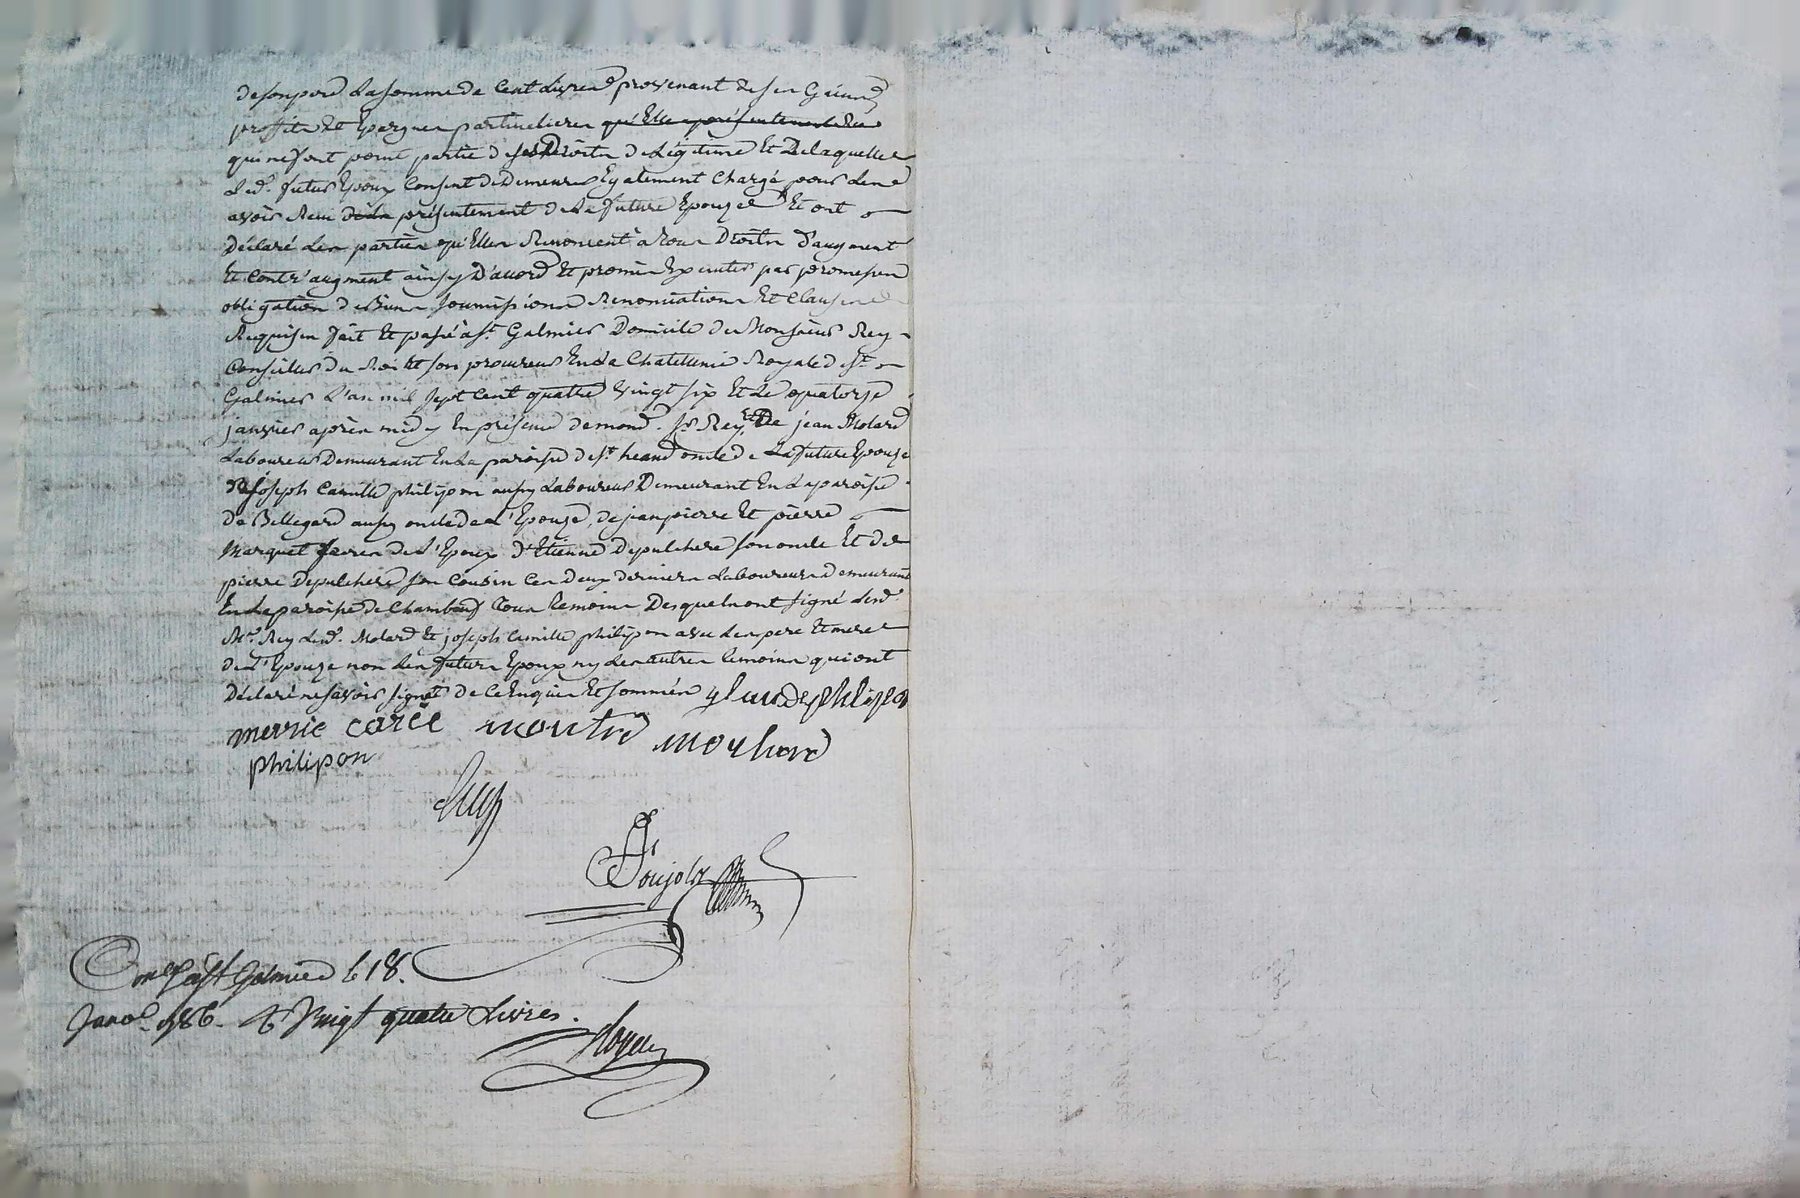 de son pere La somme de Cent Livres provenant de ses Gains
proffits Et Epargnes particulieres qu'Elle a présentement Reu
qui ne font point partie de ses Droits de Légitime Et De laquelle
Led. futur Epoux Consent De Demeurer Egalement Chargé pour L'en
avoir Reçu de la présentement de La future Epouze Et ont
Déclaré Les parties qu'Elles Renoncent à tous Droits D'augment
Et Contr'augment ainsy D'accord Et promis Exécuter par promesses
obligation de Biens soumissions Renonciations Et Clauses
Requises fait Et passé à St. Galmier Domicile de Monsieur Rey
Conseiller du Roi Et son procureur En La Chatellenie Royale de St.
Galmier L'an mil sept Cent quatre vingt six Et Le quatorze
janvier après midy En présence de mond. Sr. Rey, Et De jean Molard
Laboureur Demeurant En La paroisse de St. heand oncle de La future Epouze
De joseph Camille philipon aussy Laboureur Demeurant En La paroisse
de Bellegard aussy oncle de L'Epouze, de jean pierre Et pierre
Marquet freres de L'Epoux d'Etienne Depulchere son oncle Et de
pierre Depulchere son Cousin Ces Deux derniers Laboureurs Demeurant
En La paroisse de Chambeuf Tous temoins Desquels ont signé Led.
Mr. Rey Led. Molard Et joseph Camille philipon avec Les pere Et mere
de L'Epouze non Les futurs Epoux ny Les autres temoins qui ont
Déclaré ne savoir signer de Ce Enquis Et sommés glaude philipon
merrie carée moulard
philipon
Rey
Poujolz
Con.lé à St Galmier le 18.
Janv. 1786. R. Vingt quatre Livres.